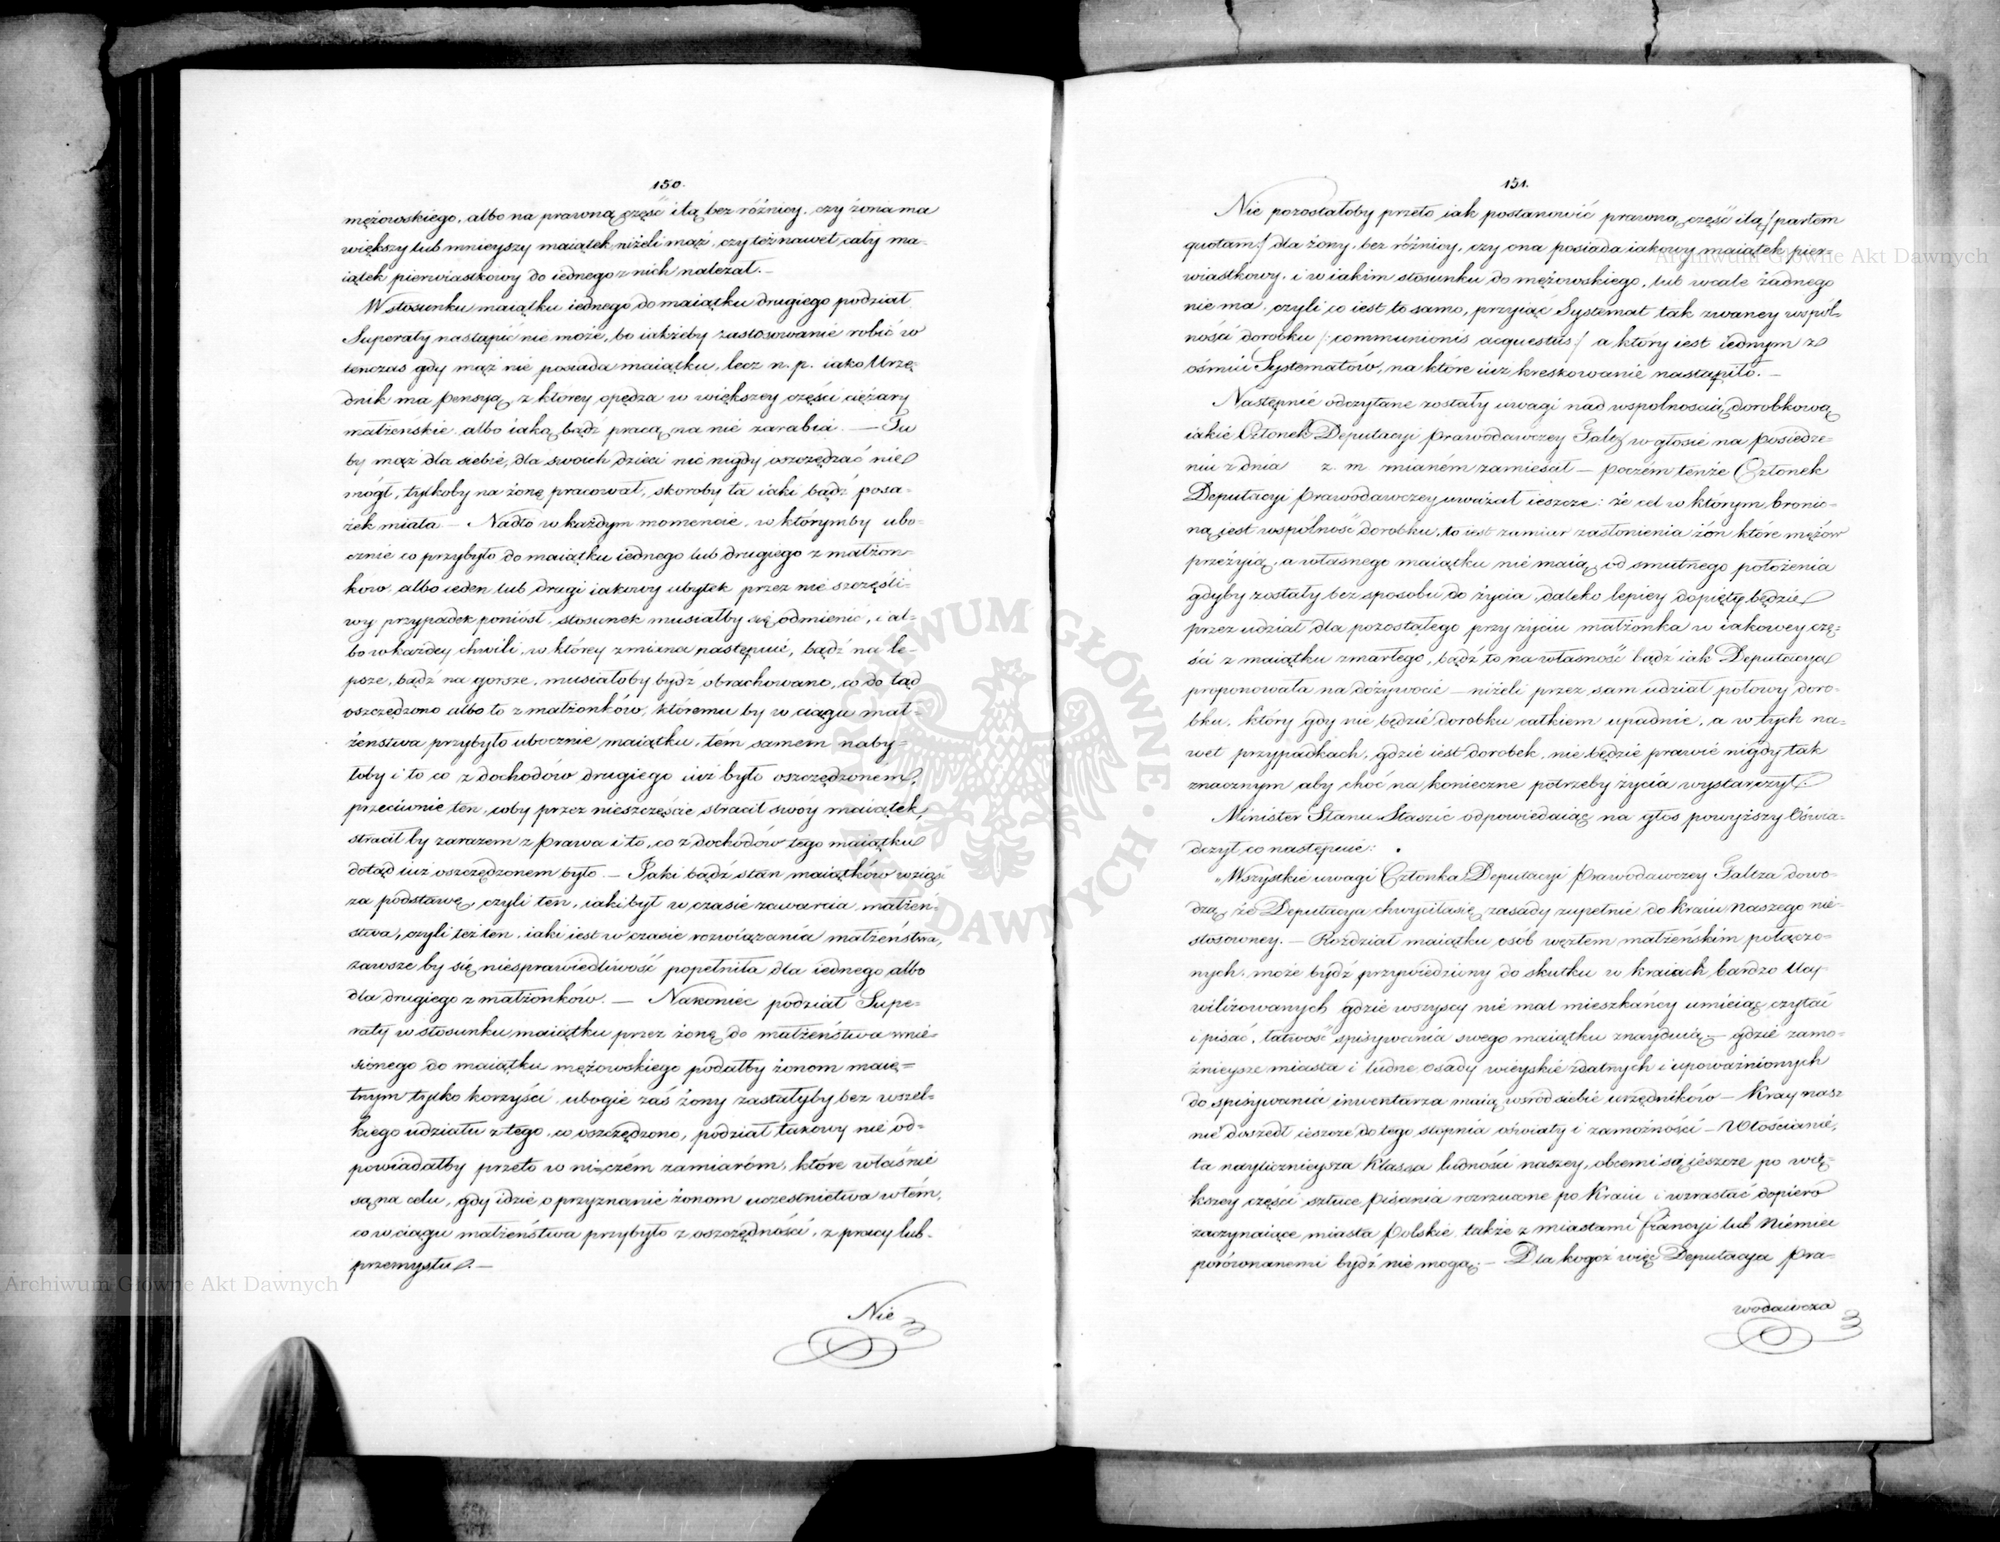 150.
mężowskiego, albo na prawną część itą bez różnicy, czy żona ma
większy lub mnieyszy maiątek niżeli mąż, czy też nawet cały ma-
iątek pierwiastkowy do iednego z nich należał. —
W stosunku maiątku iednego do maiątku drugiego podział
Superaty nastąpić nie może, bo iakżeby zastosowanie robić w
tenczas gdy mąż nie posiada maiątku, lecz n. p. iako Urzę-
dnik ma pensyą, z którey opędza w większey części ciężary
małżenskie albo iaką bądź pracą na nie zarabia. — Tu
by mąż dla siebie, dla swoich dzieci nic nigdy oszczędzać nie
mógł, tylkoby na żonę pracował, skoroby ta iaki bądź posa-
żek miała — Nadto w każdym momencie, w którymby ubo-
cznie co przybyło do maiątku iednego lub drugiego z małżon-
ków albo ieden lub drugi iakowy ubytek przez nie szczęśli-
wy przypadek poniosł, stosunek musiałby się odmienić, i al-
bo w każdey chwili, w którey zmiana następuie, bądź na le-
psze, bądź na gorsze, musiałoby bydź obrachowane, co do tąd
oszczędzono albo to z małżonków, któremu by w ciągu mał-
żenstwa przybyło ubocznie maiątku, tém samem naby-
łoby i to co z dochodów drugiego iuż było oszczędzoném,
przeciwnie ten, coby przez nieszczęście stracił swóy maiątek,
stracił by zarazem z prawa i to, co z dochodów tego maiątku
dotąd iuż oszczędzonem było. — Jaki bądź stan maiątków wziąść
za podstawę, czyli ten, iaki był w czasie zawarcia małżeń-
stwa, czyli też ten, iaki iest w czasie rozwiązania małżeństwa,
zawsze by się niesprawiedliwość popełniła dla iednego albo
dla drugiego z małżonków. — Nakoniec podział Supe-
raty w stosunku maiątku przez żonę do małżeństwa wnie-
sionego do maiątku mężowskiego podałby żonom maię-
tnym tylko korzyści, ubogie zaś żony zastałyby bez wszel-
kiego udziału z tego, co oszczędzono, podział takowy nie od-
powiadałby przeto w niczém zamiaróm, które właśnie
są na celu, gdy idzie o przyznanie żonom uczestnictwa w tém,
co w ciągu małżeństwa przybyło z oszczędności, z pracy lub
przemysłu. —
Nie
151.
Nie pozostałoby przeto iak postanowić prawną część itą /: partem
quotam :/ dla żony, bez różnicy, czy ona posiada iakowy maiątek pier-
wiastkowy, i w iakim stosunku do mężowskiego, lub wcale żadnego
nie ma, czyli co iest to samo, przyiąć Systemat tak zwaney wspól-
ności dorobku /: communionis acquestus :/ a który iest iednym z
ośmiu Systematów, na które iuż kreskowanie nastąpiło. —
Następnie odczytane zostały uwagi nad wspolnoscią dorobkową
iakie Członek Deputacyi Prawodawczey Faltz w głosie na posiedze-
niu z dnia z. m mianém zamieścił — poczém tenże Członek
Deputacyi Prawodawczey uważał ieszcze: że cel w którym bronio-
ną iest wspólność dorobku, to iest zamiar zasłonienia żón które mężów
przeżyią, a własnego maiątku nie maią, od smutnego położenia
gdyby zostały bez sposobu do życia, daleko lepiey dopięty będzie
przez udział dla pozostałego przy życiu małżonka w iakowey czę-
ści z maiątku zmarłego, bądź to na własność bądź iak Deputacya
proponowała na dożywocie — niżeli przez sam udział połowy doro-
bku, który gdy nie będzie dorobku całkiem upadnie, a w tych na-
wet przypadkach, gdzie iest dorobek, nie będzie prawie nigdy tak
znacznym aby choć na konieczne potrzeby życia wystarczył. —
Minister Stanu Staszic odpowiedaiąc na głos powyższy Oświa-
dczył co następuie:
„Wszystkie uwagi Członka Deputacyi Prawodawczey Faltza dowo-
dzą, że Deputacya chwyciła się zasady zupełnie do kraiu Naszego nie-
stosowney. — Rozdział maiątku osób węzłem małżeńskim połączo-
nych, może bydź przywiedziony do skutku w kraiach bardzo Ucy-
wilizowanych gdzie wszyscy nie mal mieszkańcy umieiąc czytać
i pisać, łatwość spisywania swego maiątku znayduią — gdzie zamo-
żnieysze miasta i ludne osady wieyskie zdatnych i upoważnionych
do spisywania inwentarza maią wśród siebie urzędników — Kray nasz
nie doszedł ieszcze do tego stopnia oświaty i zamożności — Włościanie,
ta nayliczniejsza Klassa ludności naszey, obcemi są ieszcze po wię-
kszey części sztuce pisania rozrzucone po Kraiu i wzrastać dopiero
zaczynaiące miasta Polskie, także z miastami Francyi lub Niemiec
porównanemi bydź nie mogą; — Dla kogoż więc Deputacya Pra-
wodawcza
Archiwum Główne Akt Dawnych
Archiwum Główne Akt Dawnych
ARCHIWUM GŁÓWNE AKT DAWNYCH